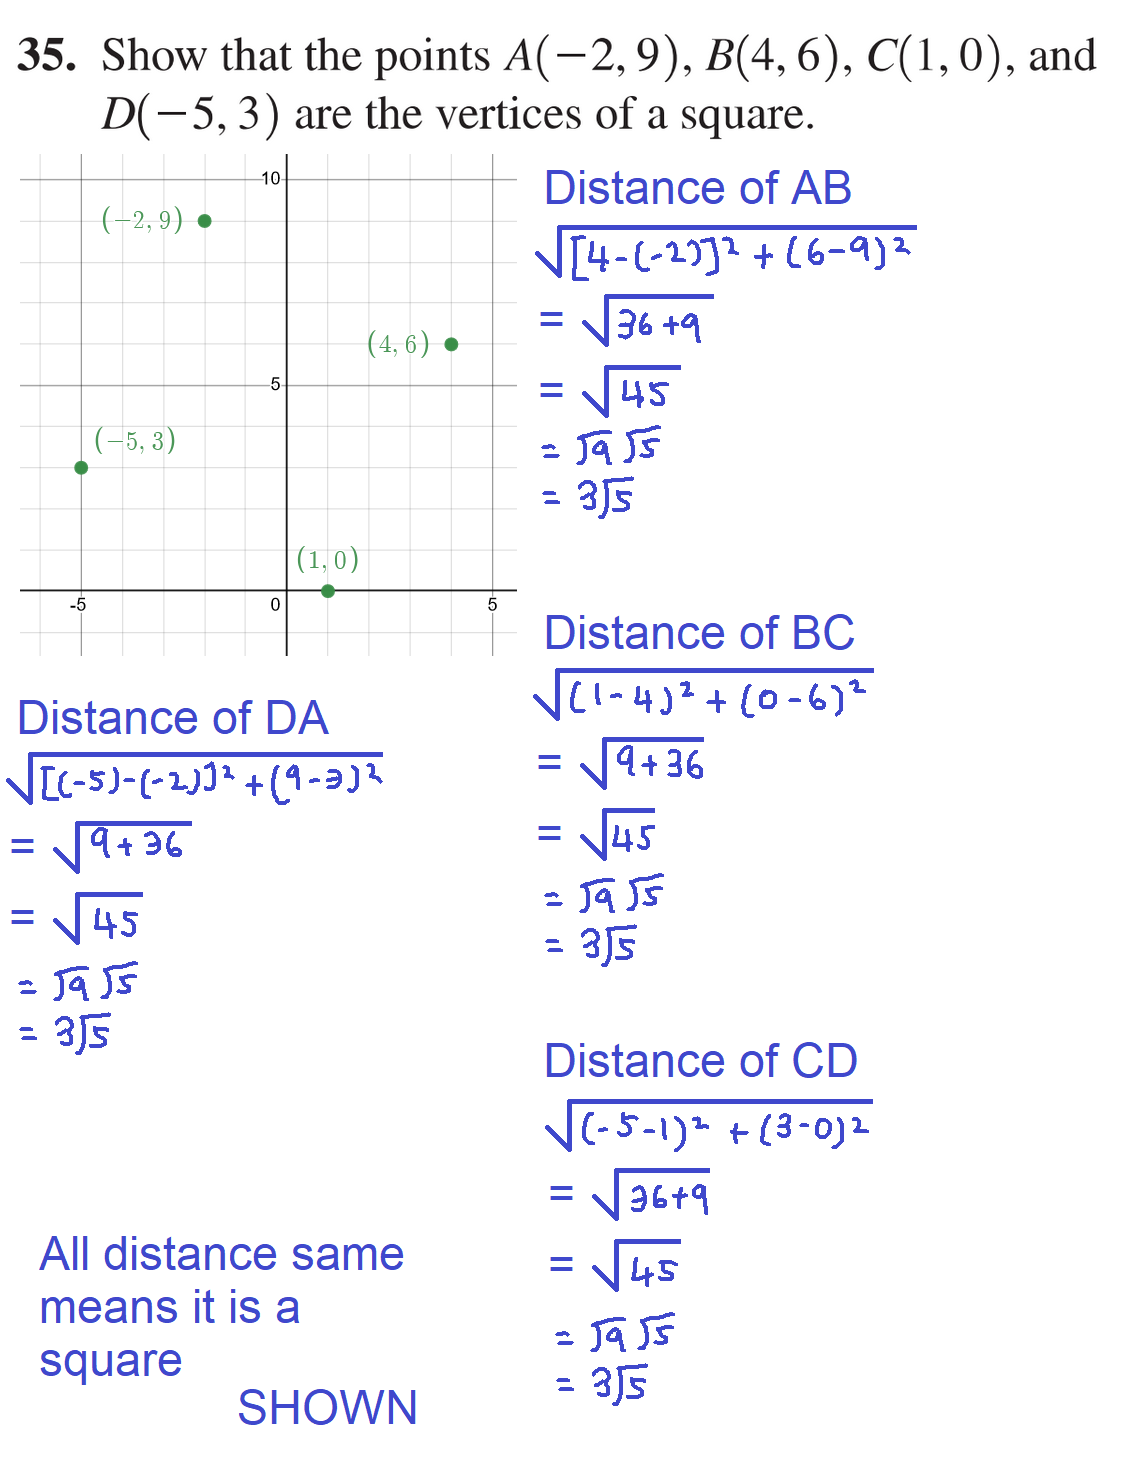 35. Show that the points A(−2, 9), B(4, 6), C(1, 0), and
D(−5, 3) are the vertices of a square.
10
(−2, 9)
(4, 6)
5
(−5, 3)
(1, 0)
-5
0
5
Distance of AB
√[4-(-2)]² + (6-9)²
= √36+9
= √45
= √9 √5
= 3√5
Distance of BC
√(1-4)² + (0-6)²
= √9+36
= √45
= √9 √5
= 3√5
Distance of DA
√[(-5)-(-2)]² + (9-3)²
= √9+36
= √45
= √9 √5
= 3√5
Distance of CD
√(-5-1)² + (3-0)²
= √36+9
= √45
= √9 √5
= 3√5
All distance same
means it is a
square
SHOWN